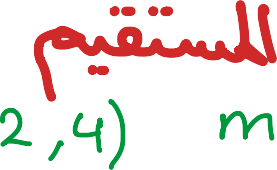 المستقيم
2,4) m